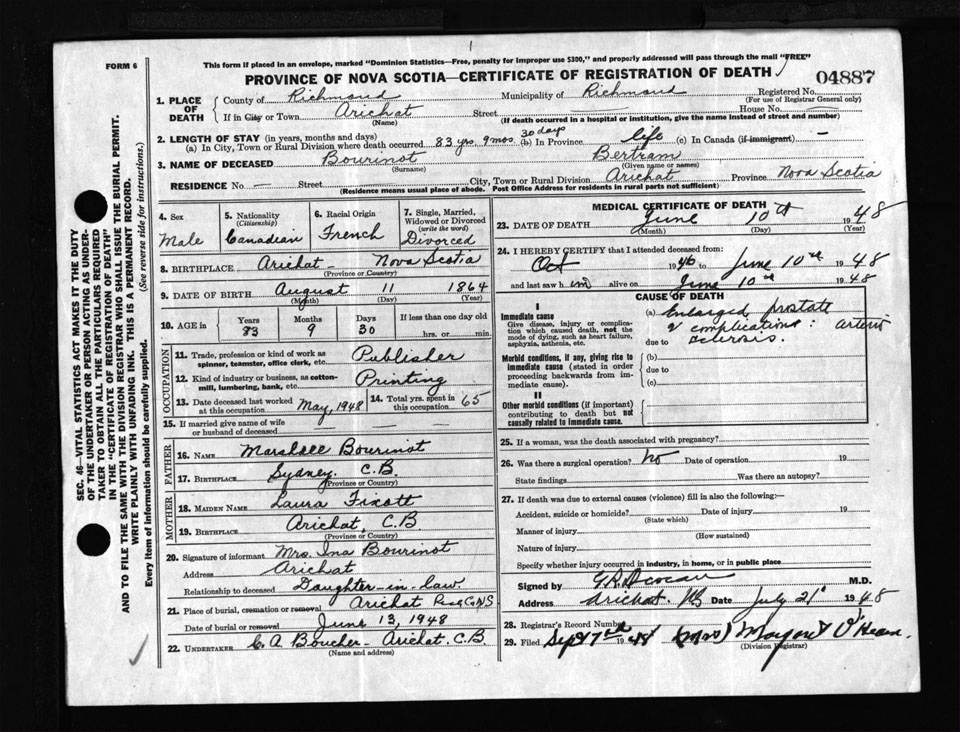 FORM 6
This form if placed in an envelope, marked "Dominion Statistics—Free, penalty for improper use $300," and properly addressed will pass through the mail "FREE"
PROVINCE OF NOVA SCOTIA—CERTIFICATE OF REGISTRATION OF DEATH
04887
1. PLACE OF DEATH
County of Richmond Municipality of Richmond Registered No.
(For use of Registrar General only)
If in City or Town Arichat Street House No. —
(Name) (If death occurred in a hospital or institution, give the name instead of street and number)
2. LENGTH OF STAY (in years, months and days)
(a) In City, Town or Rural Division where death occurred 83 yrs. 9 mos. 30 days (b) In Province life (c) In Canada (if immigrant) —
3. NAME OF DECEASED Bourinot Bertram
(Surname) (Given name or names)
RESIDENCE No. — Street City, Town or Rural Division Arichat Province Nova Scotia
(Residence means usual place of abode. Post Office Address for residents in rural parts not sufficient)
4. Sex Male
5. Nationality (Citizenship) Canadian
6. Racial Origin French
7. Single, Married, Widowed or Divorced (write the word) Divorced
8. BIRTHPLACE Arichat — Nova Scotia
(Province or Country)
9. DATE OF BIRTH August 11 1864
(Month) (Day) (Year)
10. AGE in Years 83 Months 9 Days 30 If less than one day old hrs. or min.
OCCUPATION
11. Trade, profession or kind of work as spinner, teamster, office clerk, etc. Publisher
12. Kind of industry or business, as cotton-mill, lumbering, bank, etc. Printing
13. Date deceased last worked at this occupation May, 1948 14. Total yrs. spent in this occupation 65
15. If married give name of wife or husband of deceased — — —
FATHER
16. NAME Marshall Bourinot
17. BIRTHPLACE Sydney, C.B.
(Province or Country)
MOTHER
18. MAIDEN NAME Laura Fixott
19. BIRTHPLACE Arichat, C.B.
(Province or Country)
20. Signature of informant Mrs. Ina Bourinot
Address Arichat
Relationship to deceased Daughter-in-law
21. Place of burial, cremation or removal Arichat NS
Date of burial or removal June 13, 1948
22. UNDERTAKER C. A. Boucher — Arichat. C.B.
(Name and address)
MEDICAL CERTIFICATE OF DEATH
23. DATE OF DEATH June 10th 1948
(Month) (Day) (Year)
24. I HEREBY CERTIFY that I attended deceased from:
Oct 1946 to June 10 1948
and last saw him alive on June 10 1948
CAUSE OF DEATH
I
Immediate cause
Give disease, injury or complication which caused death, not the mode of dying, such as heart failure, asphyxia, asthenia, etc.
(a) Enlarged prostate
& complications: arterio
due to sclerosis.
Morbid conditions, if any, giving rise to immediate cause (stated in order proceeding backwards from immediate cause).
(b)
due to
(c)
II
Other morbid conditions (if important) contributing to death but not causally related to immediate cause.
25. If a woman, was the death associated with pregnancy?
26. Was there a surgical operation? No Date of operation 19
State findings Was there an autopsy?
27. If death was due to external causes (violence) fill in also the following:—
Accident, suicide or homicide? Date of injury 19
(State which)
Manner of injury
(How sustained)
Nature of injury
Specify whether injury occurred in industry, in home, or in public place
Signed by M.D.
Address Arichat. NS Date July 21 1948
28. Registrar's Record Number
29. Filed Sept 7 1948 (Mrs) O'Hearn
(Division Registrar)
SEC. 46—VITAL STATISTICS ACT MAKES IT THE DUTY
OF THE UNDERTAKER OR PERSON ACTING AS UNDER-
TAKER TO OBTAIN ALL THE PARTICULARS REQUIRED
IN THE "CERTIFICATE OF REGISTRATION OF DEATH"
AND TO FILE THE SAME WITH THE DIVISION REGISTRAR WHO SHALL ISSUE THE BURIAL PERMIT.
WRITE PLAINLY WITH UNFADING INK. THIS IS A PERMANENT RECORD.
Every item of information should be carefully supplied. (See reverse side for instructions.)